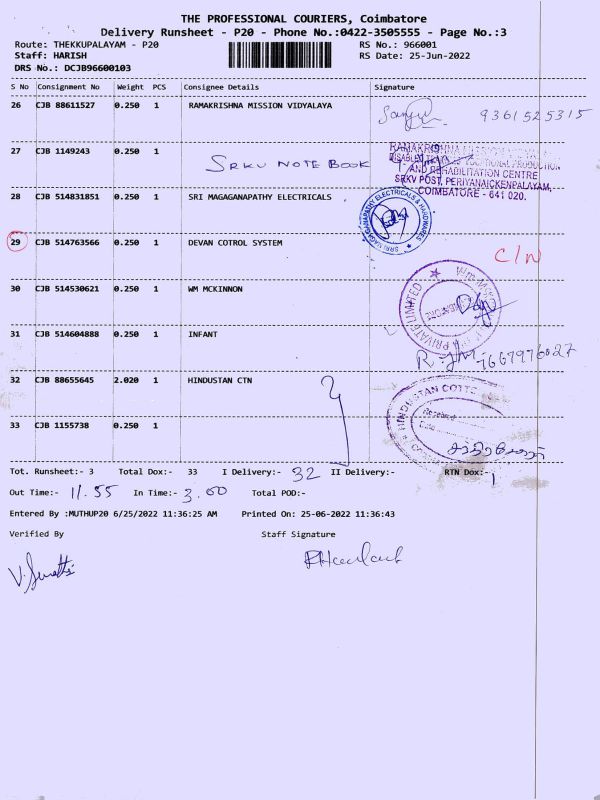 THE PROFESSIONAL COURIERS, Coimbatore
Delivery Runsheet - P20 - Phone No.:0422-3505555 - Page No.:3
Route: THEKKUPALAYAM - P20 RS No.: 966001
Staff: HARISH RS Date: 25-Jun-2022
DRS No.: DCJB96600103
S No Consignment No Weight PCS Consignee Details Signature
26 CJB 88611527 0.250 1 RAMAKRISHNA MISSION VIDYALAYA 9361525315
27 CJB 1149243 0.250 1 SRKV NOTE BOOK
RAMAKRISHNA
AND REHABILITATION CENTRE
SRKV POST, PERIYANAICKENPALAYAM,
COIMBATORE - 641 020.
28 CJB 514831851 0.250 1 SRI MAGAGANAPATHY ELECTRICALS
29 CJB 514763566 0.250 1 DEVAN COTROL SYSTEM C/N
30 CJB 514530621 0.250 1 WM MCKINNON
PRIVATE LIMITED
31 CJB 514604888 0.250 1 INFANT
32 CJB 88655645 2.020 1 HINDUSTAN CTN
HINDUSTAN
Received
Date
33 CJB 1155738 0.250 1
Tot. Runsheet:- 3 Total Dox:- 33 I Delivery:- 32 II Delivery:- RTN Dox:- 1
Out Time:- 11.55 In Time:- 3.00 Total POD:-
Entered By :MUTHUP20 6/25/2022 11:36:25 AM Printed On: 25-06-2022 11:36:43
Verified By Staff Signature